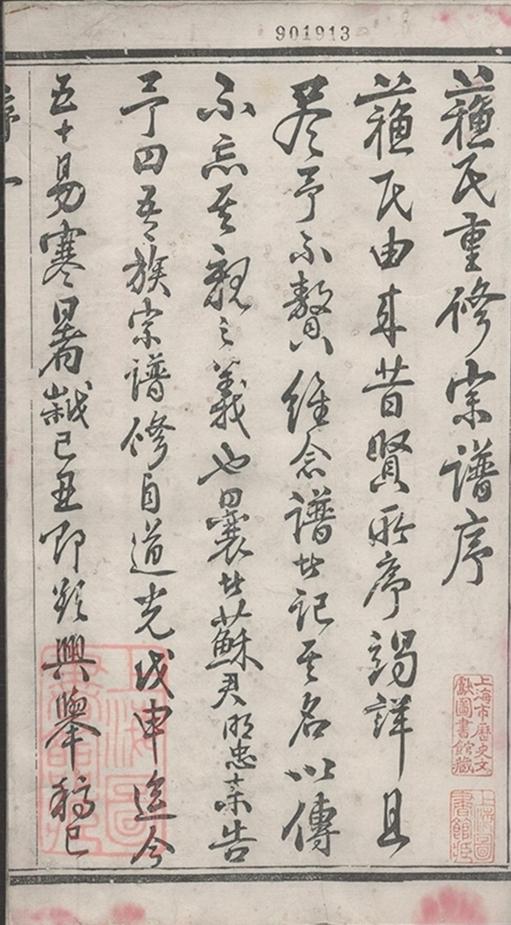 901913
蘓氏重修宗譜序
蘓氏由来昔賢所序竭詳且
尽予不贅維念譜者記其名以傳
不忘其親之義也曩者蘇君明忠来告
予曰吾族宗譜修自道光戊申迄今
五十易寒暑越己丑即欲興舉稿已
序一
上海市歷史文
獻圖書館藏
上海圖
書館藏
上海圖
書館藏